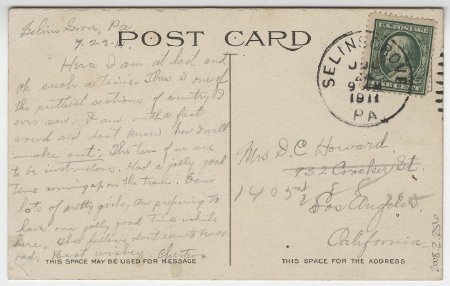 Selins Grove, Pa
7-23-
POST CARD
Here I am at last and
oh such a time. This is one of
the prettist sections of country I
ever saw. I am with a fast
crowd and don't know how I will
make out; The ten of us are
to be instructors. Had a jolly good
time coming up on the train. Some
lots of pretty girls. Am preparing to
have one jolly good time while
here. The fellows don't seem to be so
bad. Best wishes. Chester
THIS SPACE MAY BE USED FOR MESSAGE
SELINS GROVE
JUL
24
9
1911
PA.
Mrs D. C. Howard.
732 Crocker St.
1405
Los Angeles
California
THIS SPACE IS FOR THE ADDRESS